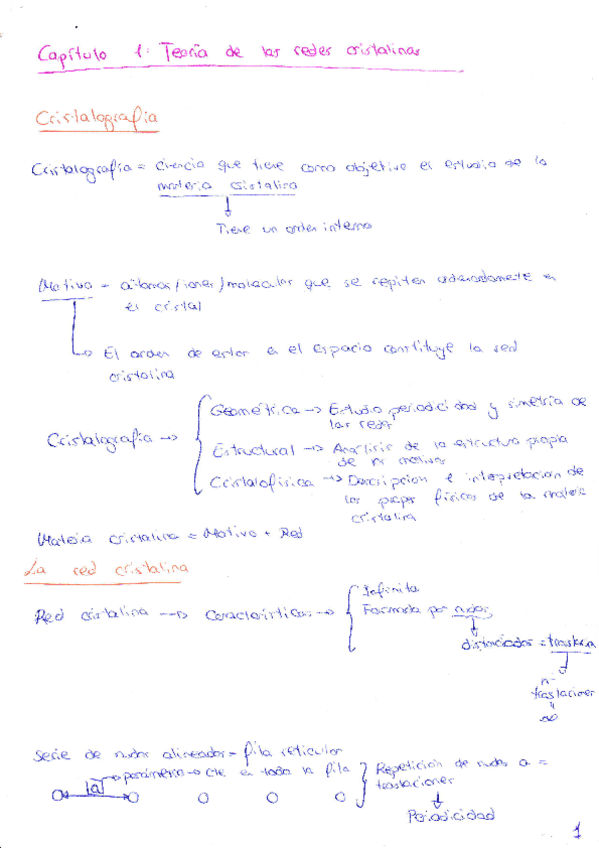 Capítulo 1: Teoría de las redes cristalinas
Cristalografía
Cristalografía = ciencia que tiene como objetivo el estudio de la
materia cristalina
Tiene un orden interno
Motivo = átomos/iones/moléculas que se repiten ordenadamente en
el cristal
El orden de estos en el espacio constituye la red
cristalina
Cristalografía →
Geométrica → Estudio periodicidad y simetría de
las redes
Estructural → Análisis de la estructura propia
de motivos
Cristalofísica → Descripcion e interpretación de
las físicas de la materia
cristalina
Materia cristalina = Motivo + Red
La red cristalina
Red cristalina → Características →
Infinita
Formada por nudos
distanciados =
nº
traslaciones
∞
Serie de nudos alineados = fila reticular
|a| → parámetro → cte en toda la fila
Repetición de nudos a =
traslaciones
Periodicidad
1